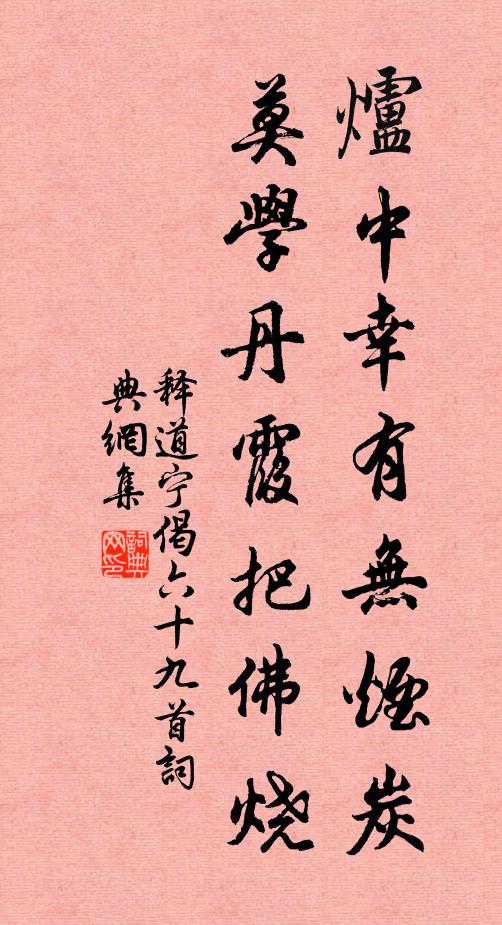 爐中幸有無煙炭
莫學丹霞把佛烧
释道宁偈六十九首詞
典網集
詞典网印